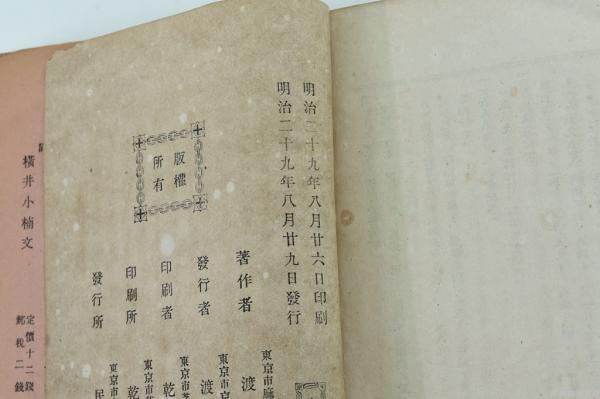 明治二十九年八月廿六日印刷
明治二十九年八月廿九日發行
版權
所有
著作者
東京市麻
渡
發行者
東京市京
渡
印刷者
東京市芝
乾
印刷所
東京市芝
乾
發行所
民
橫井小楠文
定價十二錢
郵稅二錢